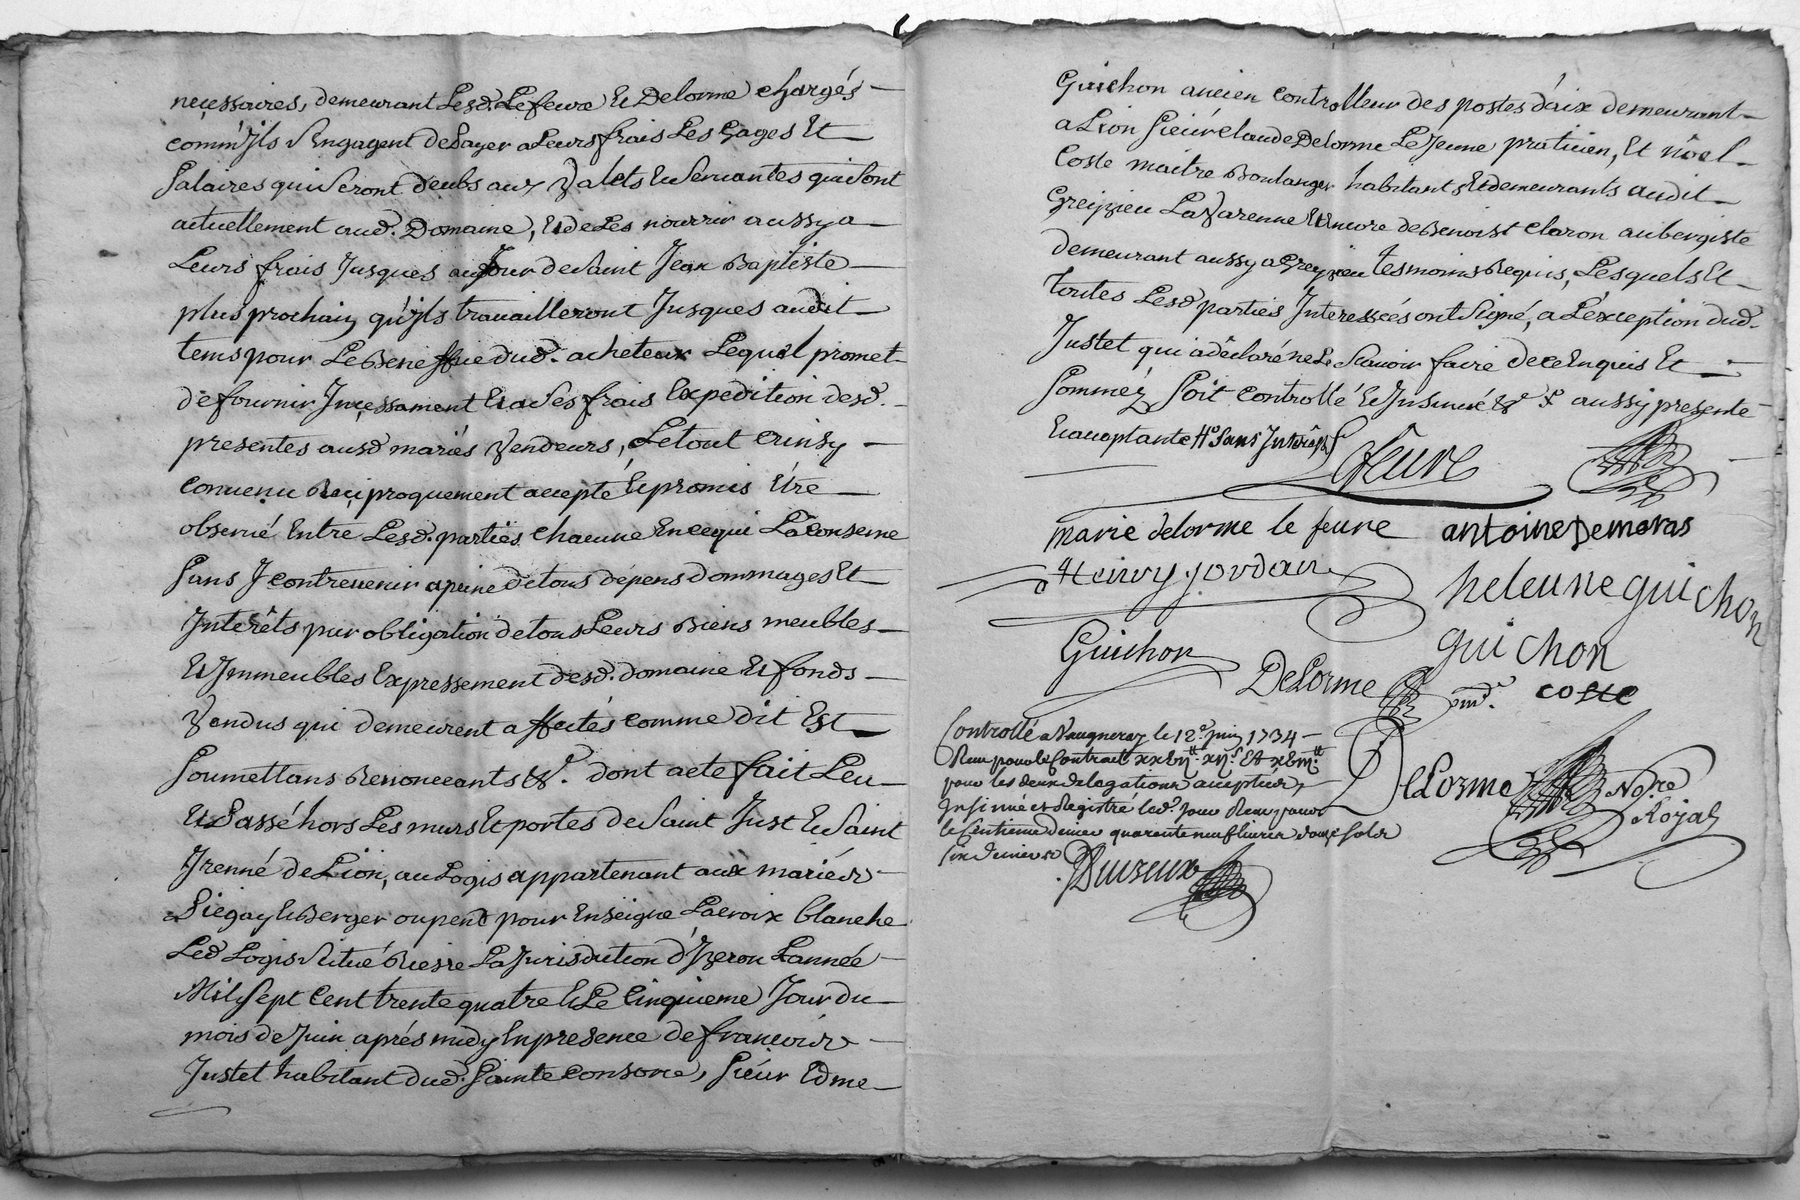 necessaires, demeurant Lesd. Lefevre Et Delorme chargés
comm'Jls s'Engagent de Payer a Leurs frais Les Gages Et
Salaires qui Seront deubs aux Valets Et Servantes qui sont
actuellement aud. Domaine, Et de Les nourrir aussy a
Leurs frais Jusques au Jour de Saint Jean Baptiste
plus prochain qu'Jls travailleront Jusques audit
tems pour Le Beneffice dud. acheteur Lequel promet
de fournir Jncessament Et a Ses frais Expedition desd.
presentes ausd mariés Vendeurs, Le tout Ainsy
convenu Reciproquement accepté Et promis Etre
observé Entre Lesd. parties chacune En ce qui La Conserne
Sans J contrevenir a peine de tous dépens dommages Et
Jnterêts par obligation de tous Leurs Biens meubles
Et Jmmeubles Expressement desd. domaine Et fonds
Vendus qui demeurent affectés comme dit Est
Soumettans Renonceants &c. dont acte fait Leu
Et Passé hors Les murs Et portes de Saint Just Et Saint
Jrenné de Lion, au Logis appartenant aux mariés
Piegay Et Berger ou pend pour Enseigne La croix blanche
Led Logis Situé Riesre La Jurisdiction d'Yzeron L'année
Mil Sept Cent trente quatre Et Le Cinquieme Jour du
mois de Juin aprés midy En presence de francois
Justet habitant dud. Sainte Consorce, Sieur Edme
Guichon ancien controlleur des postes d'aix demeurant
a Lion Sieur Claude Delorme Le Jeune praticien, Et Nôel
Coste maitre Boulanger habitants Et demeurants audit
Greizieu La Varenne Encore de Benoist Claron aubergiste
demeurant aussy a Greyzieu tesmoins Requis, Lesquels Et
toutes Lesd parties Jnteressées ont Signé, a L'exception dud.
Justet qui a déclaré ne Le Scavoir faire de ce Enquis Et
Sommé, Soit Controllé Et Jnsinué &c aussy presente
Et acceptante Sans
Lefeure
marie delorme le feure antoine Demoras
Henry Jordan
heleune guichon
Guichon
guichon
DeLorme
md. coste
Controllé a Vaugneray le 12e. Juin 1734
Reçu pour le Contract
pour les deux delegations acceptées
Insinué et Registré led. Jour Reçu pour
le Centieme denier quarente neuf livres douze sols
six deniers
Delorme No.re
Royal